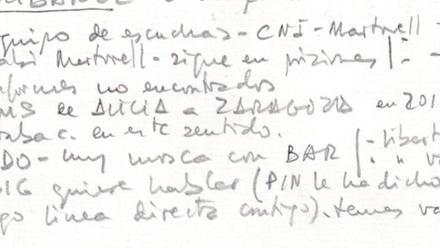 quipo de escuchas - CNI - Martorell -
Martorell - sigue en prisiones | : -
informes no encontrados
SMS de ALICIA a ZARAGOZA en 201
en este sentido.
DO - muy mosca con BAR | - libert
quiere hablar (PIN le ha dicho
go línea directa contigo). temas va